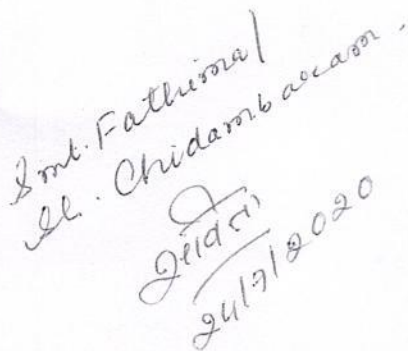 Smt. Fathima/
Sh. Chidambaram.
24/7/2020